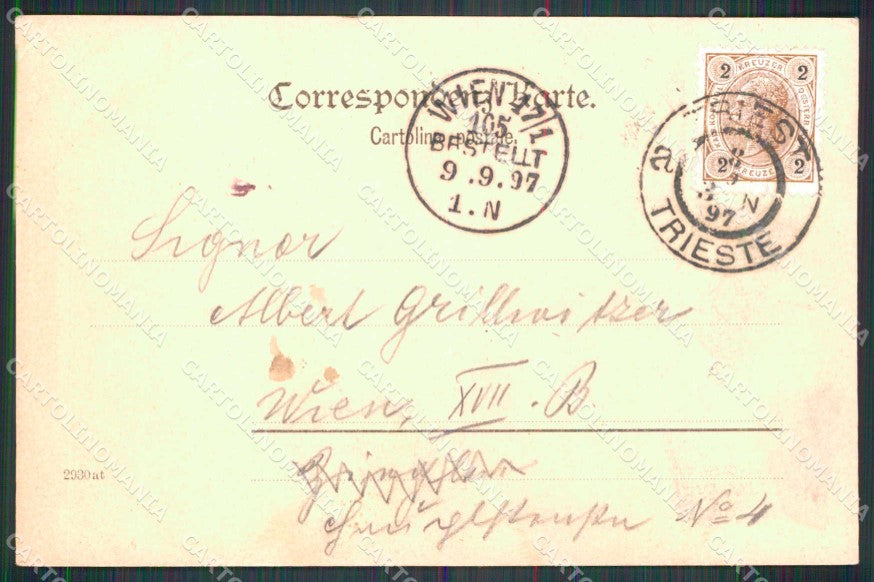 Correspondenz-Karte.
Cartolina postale.
WIEN 17/1
105
BESTELLT
9.9.97
1.N
TRIEST
a
8
9
3. N
97
TRIESTE
2 KREUZER 2
2 KREUZER 2
Signor
Albert Grillwitzer
Wien, XVII. B
No 4
2930 at
CARTOLINOMANIA